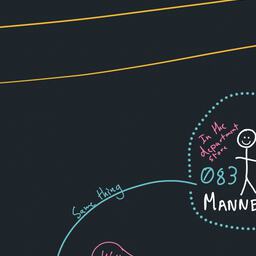 In the
department
store
083
MANNE
Same thing